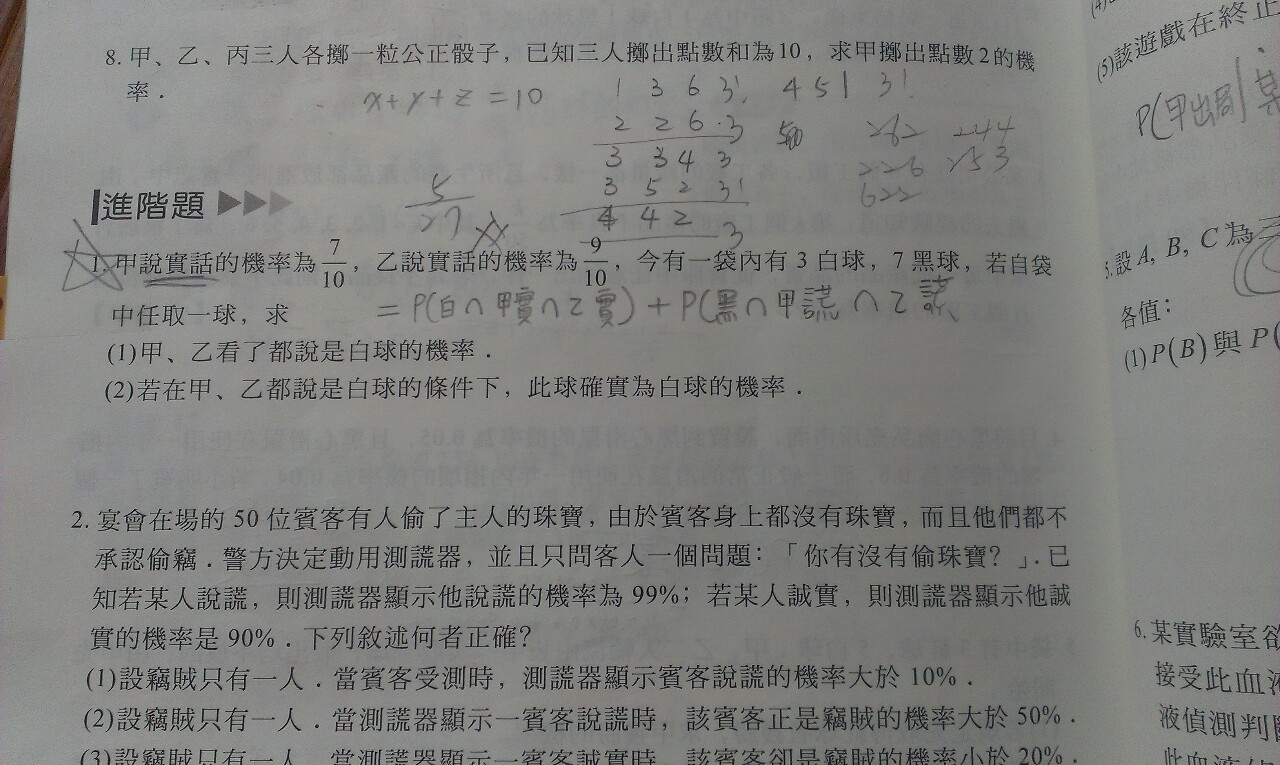 8. 甲、乙、丙三人各擲一粒公正骰子，已知三人擲出點數和為10，求甲擲出點數2的機
率．
x+y+z=10
1 3 6 3! 4 5 1 3!
2 2 6 3
3 3 4 3
3 5 2 3!
4 4 2 3
262 244
226 253
622
5/27
進階題
1. 甲說實話的機率為 7/10，乙說實話的機率為 9/10，今有一袋內有 3 白球，7 黑球，若自袋
中任取一球，求
= P(白∩甲實∩乙實) + P(黑∩甲謊∩乙謊
(1)甲、乙看了都說是白球的機率．
(2)若在甲、乙都說是白球的條件下，此球確實為白球的機率．
2. 宴會在場的 50 位賓客有人偷了主人的珠寶，由於賓客身上都沒有珠寶，而且他們都不
承認偷竊．警方決定動用測謊器，並且只問客人一個問題：「你有沒有偷珠寶？」．已
知若某人說謊，則測謊器顯示他說謊的機率為 99%；若某人誠實，則測謊器顯示他誠
實的機率是 90%．下列敘述何者正確？
(1)設竊賊只有一人．當賓客受測時，測謊器顯示賓客說謊的機率大於 10%．
(2)設竊賊只有一人．當測謊器顯示一賓客說謊時，該賓客正是竊賊的機率大於 50%．
(3)設竊賊只有一人．當測謊器顯示一賓客誠實時，該賓客卻是竊賊的機率小於 20%．
(5)該遊戲在終止
P(甲出局|某
5.設 A, B, C 為
各值：
(1) P(B) 與 P(
6.某實驗室欲
接受此血液
液偵測判